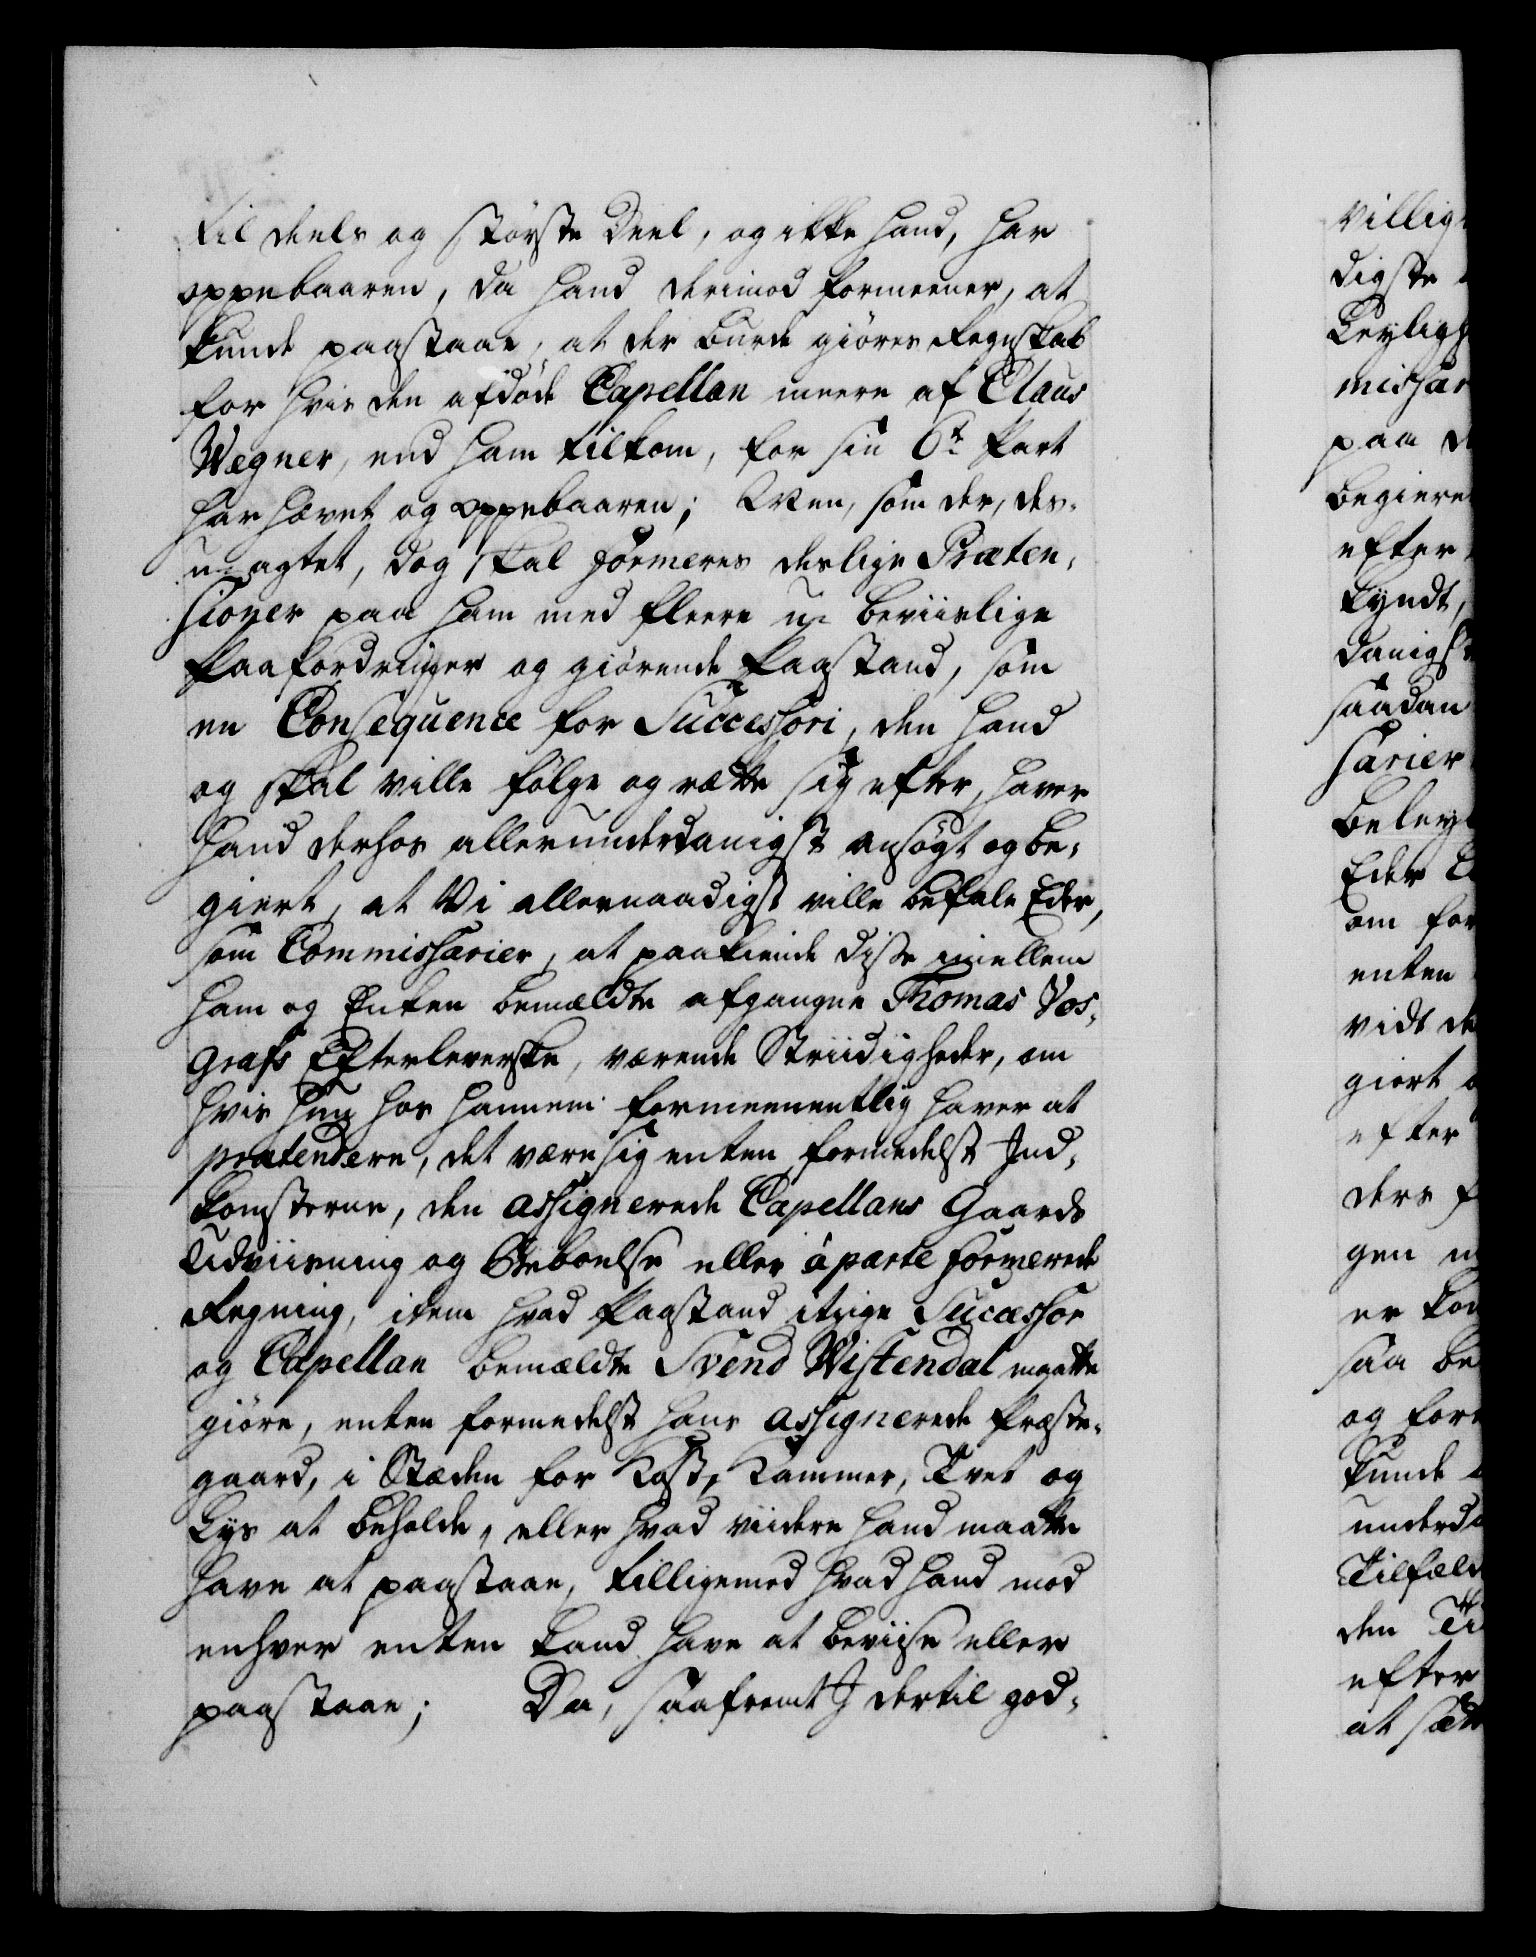 til deels og største Deel, og ikke hand, har
oppebaaren, da hand derimod formeener, at
kunde paastaae, at der burde giøres Regnskab
for hvis den afdøde Capellan meere af Claus
Wegner, end ham tilkom, for sin 6te Part
har hævet og oppebaaren; Men, som der, des-
u-agtet, dog skal formeres deslige Præten-
sioner paa ham med fleere u- beviislige
Paafordringer og giørende Paastand, som
en Consequence for Successori, den hand
og skal ville følge og rætte sig efter, haver
hand derhos allerunderdanigst ansøgt og be-
giert, at Vi allernaadigst ville befale Eder,
som Commissarier, at paakiende disse imellem
ham og Enken bemældte afgangne Thomas Vos-
grafs Efterleverske, værende Striidigheder, om
hvis hun hos hannem formeenentlig haver at
prætendere, det være sig enten formedelst Ind-
komsterne, den assignerede Capellans Gaards
Udviisning og Beboelse eller à parte formerede
Regning, item hvad Paastand itzige Successor
og Capellan bemældte Svend Wistendal maatte
giøre, enten formedelst hans assignerede Præste-
gaard, i Stæden for Kost, Kammer, Tvet og
Lys at beholde, eller hvad viidere hand maatte
have at paastaae, tilligemed hvad hand mod
enhver enten kand have at beviise eller
paastaae; Da, saafremt I dertil god-
villig
digste
Leylig
missar
paa
begiere
efter
kyndt,
danigst
saadan
sarier
beley
Eder
om for
enten
vidt de
giort
efter
ders
gen
er kom
saa be
og for
kunde
underda
Tilfæld
den Ti
efter
at sæt